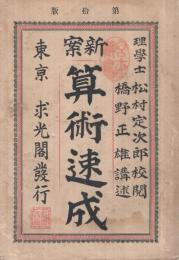 第拾版
理學士 松村定次郎校閲
橋野正雄講述
新案
算術速成
東京 求光閣發行